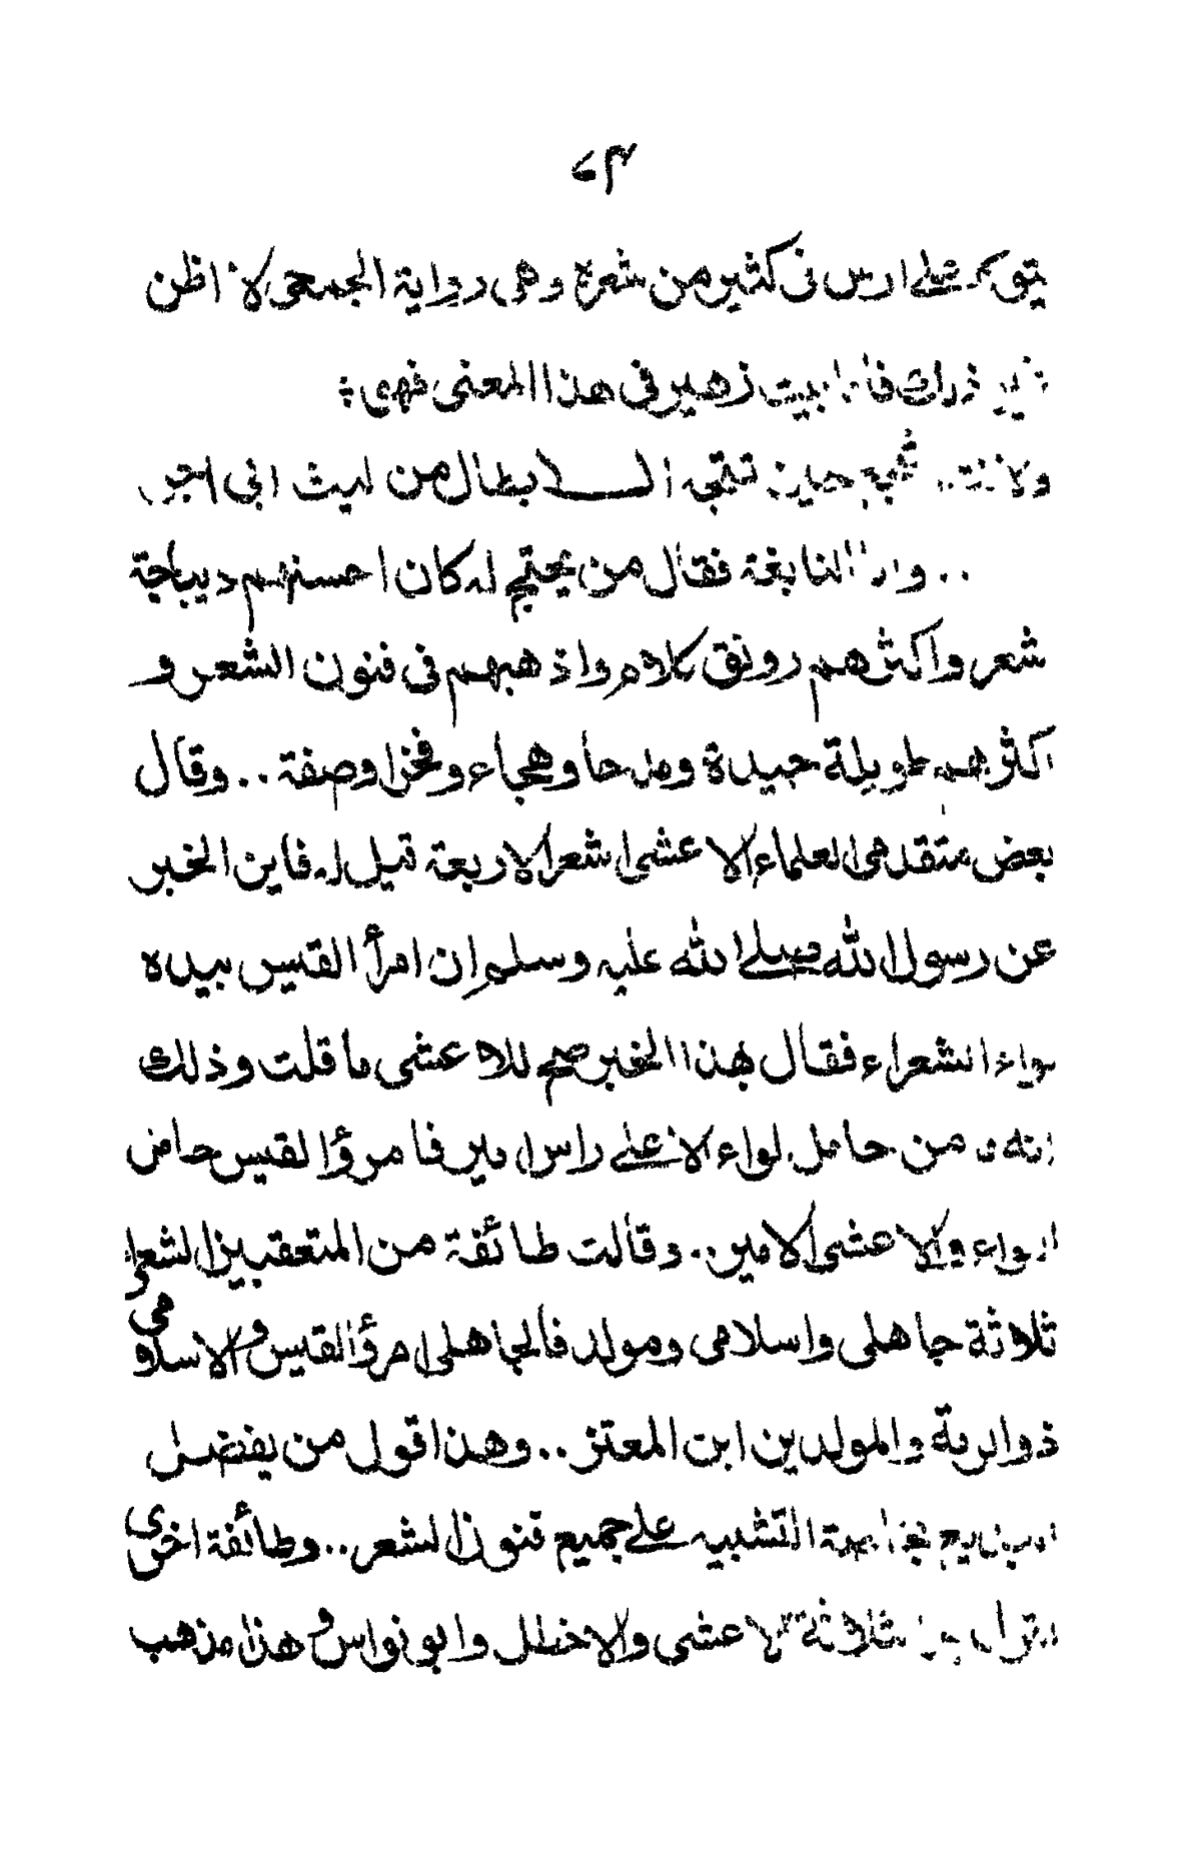 ٤٣
يتوكر على اوس فى كثير من شعره وهى رواية الجمحى لا اظن
ذلك فاما بيت زهير فى هذا المعنى فهى
ولانت اشجع حين تتجه الـابطال من ليث ابى اجر
.. واما النابغة فقال من يحتج له كان احسنهم ديباجة
شعر واكثرهم رونق كلام واذهبهم فى فنون الشعر و
اكثرهم طويلة جيدة ومدحا وهجاء وفخرا وصفة .. وقال
بعض متقدمى العلماء الاعشى اشعر الاربعة قيل له فاين الخبر
عن رسول الله صلے الله عليه وسلم ان امرأ القيس بيده
لواء الشعراء فقال بهذا الخبر صح للاعشى ما قلت وذلك
انه ما من حامل لواء الا علے راس امير فامرؤ القيس حامل
اللواء والاعشى الامير .. وقالت طائفة من المتعقبين الشعراء
ثلاثة جاهلى واسلامى ومولد فالجاهلى امرؤ القيس والاسلامى
ذو الرمة والمولدين ابن المعتز .. وهذا قول من يفضل
البديع بخاصة التشبيه علے جميع فنون الشعر .. وطائفة اخرى
تقول بل الثلاثة الاعشى والاخطل وابو نواس و هذا مذهب